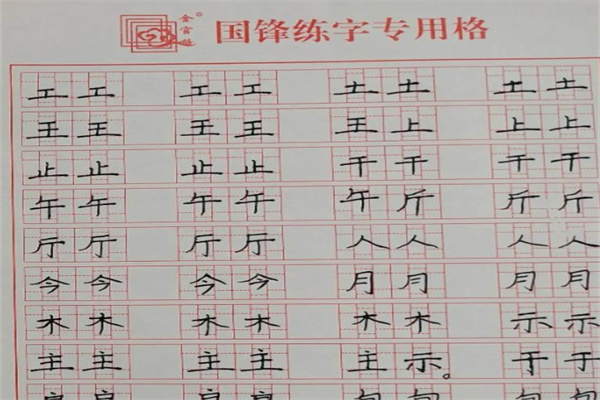 国锋练字专用格
工工 工工 土土 土土
王王 王王 王上 上上
止止 止止 干干 干干
午午 午午 午斤 斤斤
厅厅 厅厅 人人 人人
今今 今今 月月 月月
木木 木木 木木 示示
主主 主主 主示。 于于